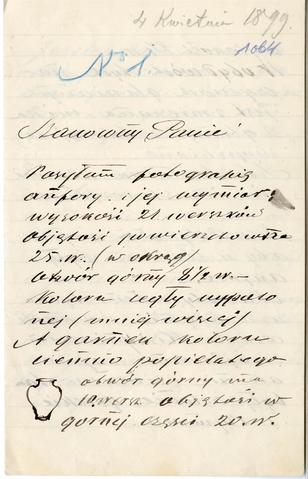 4 Kwietnia 1899.
1064
No 1
Szanowny Panie
Posyłam fotografię
amfory i jej wymiar:
wysokość 21 werszków
objętość powierzchowna
25. w. (w okrąg)
otwór górny 8 1/2 w.
Koloru cegły wypalo
nej (mniej więcej)
A garnek koloru
ciemno popielatego
otwór górny ma
10 wersz. objętość w
górnej części 20. w.